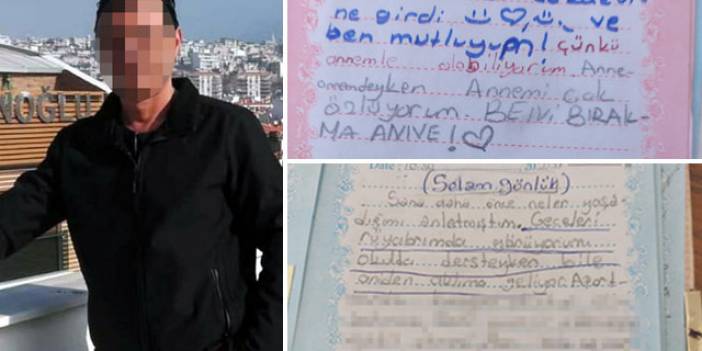 NOĞLU
ne girdi ve
ben mutluyum! Çünkü
annemle olabiliyorum. Anne-
annemdeyken Annemi çok
özlüyorum. BENİ BIRAK-
MA ANNE!
Date:
(Selam günlük)
Sana daha önce neler yaşa-
dığımı anlatmıştım. Geceleri
rüyalarımda görüyorum
okulda dersteyken bile
aniden aklıma geliyor.